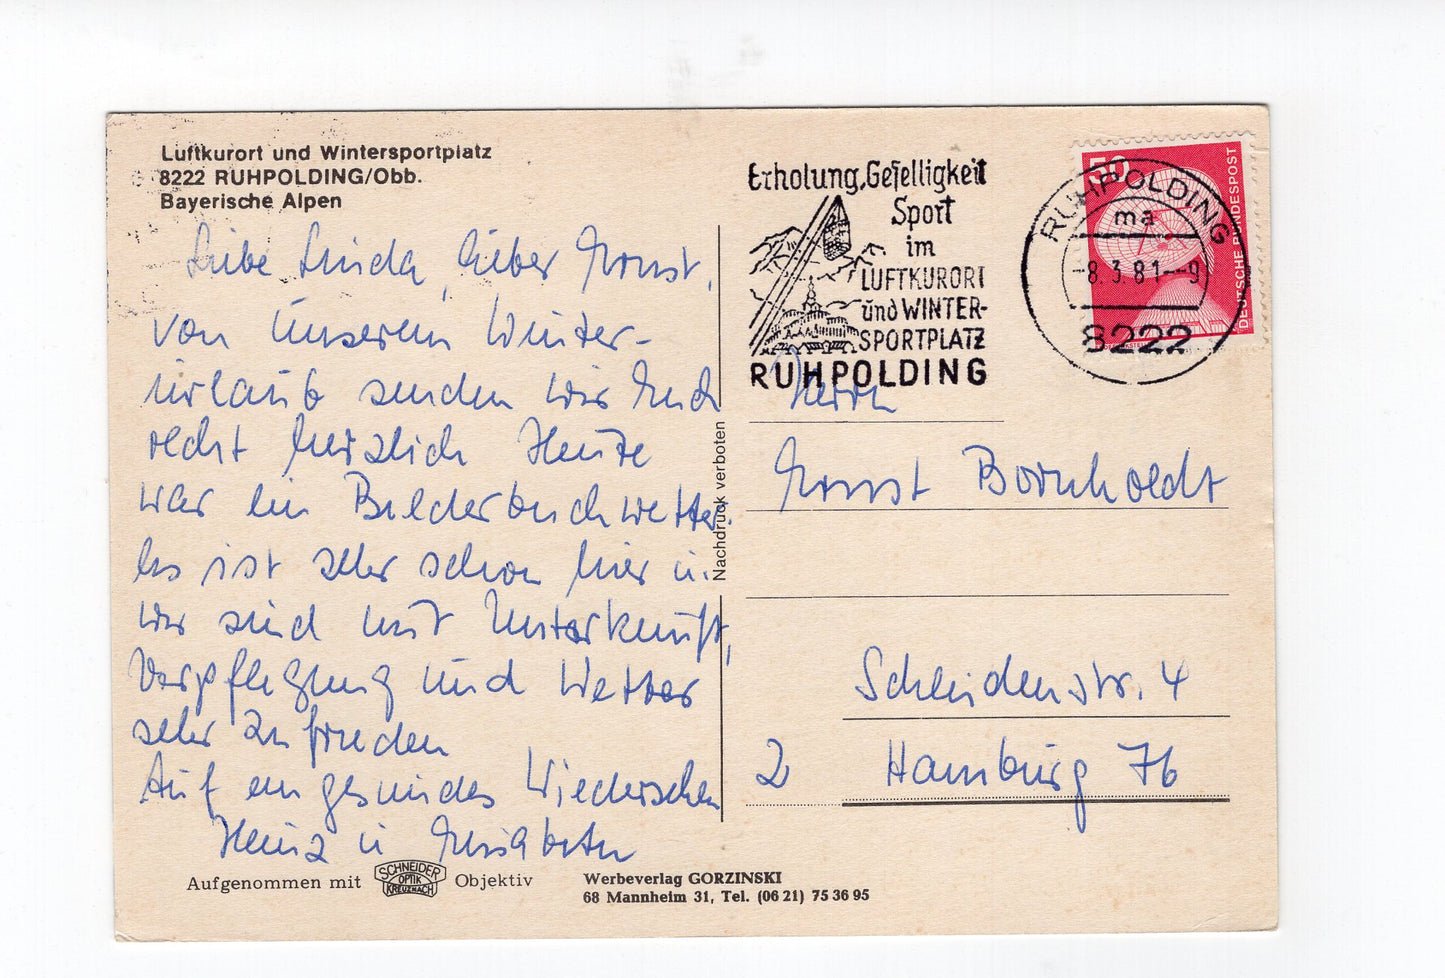 Luftkurort und Wintersportplatz
8222 RUHPOLDING/Obb.
Bayerische Alpen
Liebe Linda, lieber Ernst,
von unserem Winter-
urlaub senden wir Euch
recht herzliche Heute
war ein Bilderbuchwetter.
Es ist sehr schön hier u.
wir sind mit Unterkunft,
Verpflegung und Wetter
sehr zufrieden
Auf ein gesundes Wiedersehen
Heinz u Elisabeth
Aufgenommen mit SCHNEIDER OPTIK KREUZNACH Objektiv
Werbeverlag GORZINSKI
68 Mannheim 31, Tel. (06 21) 75 36 95
Nachdruck verboten
Erholung, Geselligkeit
Sport
im
LUFTKURORT
und WINTER-
SPORTPLATZ
RUHPOLDING
50
DEUTSCHE BUNDESPOST
RUHPOLDING
ma
-8.3.81--9
8222
Herrn
Ernst Bornholdt
Scheidenstr. 4
2 Hamburg 76